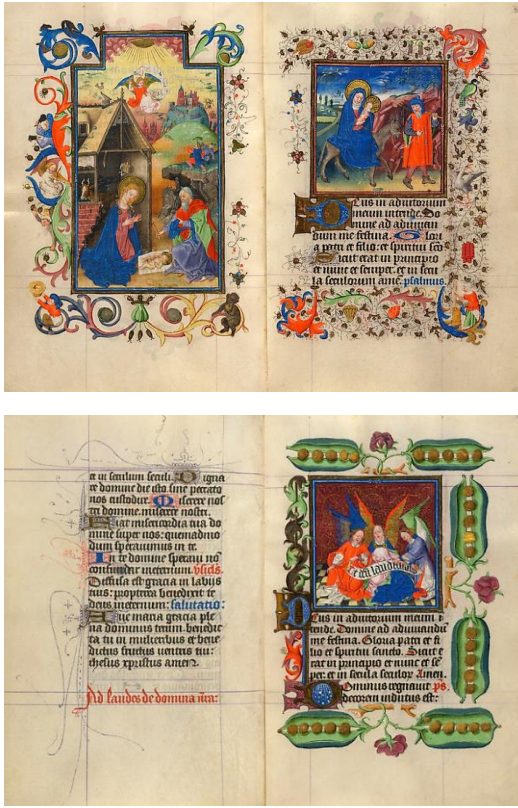 Deus in adiutorium
meum intende. Do
mine ad adiuvan
dum me festina. Glori
a patri et filio: et spiritui sco
Sicut erat in principio
et nunc et semper: et in secu
la seculorum ame. psalmus.
et in seculum seculi. Digna
re domine die isto sine peccato
nos custodire. Miserere nos
tri domine. miserere nostri.
Fiat misericordia tua do
mine super nos: quemadmo
dum speravimus in te.
In te domine speravi no
confundar in eternum. Vsics.
Diffusa est gracia in labijs
tuis: propterea benedixit te
deus in eternum: salutatio:
Ave maria gracia ple
na dominus tecum benedic
ta tu in mulieribus et bene
dictus fructus ventris tui:
ihesus xpristus amen.
Ad laudes de domina nra:
Te deu laudamus
Deus in adiutorium meum i
tende. Domine ad adiuvandu
me festina. Gloria patri et fi
lio et spiritui sancto. Sicut e
rat in principio et nunc et se
per: et in secula seculor Amen.
Dominus regnavit ps.
decorem indutus est: